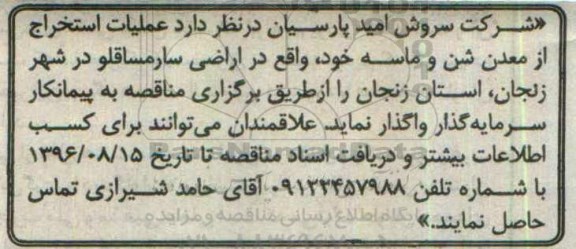 «شرکت سروش امید پارسیان درنظر دارد عملیات استخراج
از معدن شن و ماسه خود، واقع در اراضی سارمساقلو در شهر
زنجان، استان زنجان را ازطریق برگزاری مناقصه به پیمانکار
سرمایه‌گذار واگذار نماید. علاقمندان می‌توانند برای کسب
اطلاعات بیشتر و دریافت اسناد مناقصه تا تاریخ ۱۳۹۶/۰۸/۱۵
با شماره تلفن ۰۹۱۲۲۴۵۷۹۸۸ آقای حامد شیرازی تماس
حاصل نمایند.»
پایگاه اطلاع رسانی مناقصه و مزایده